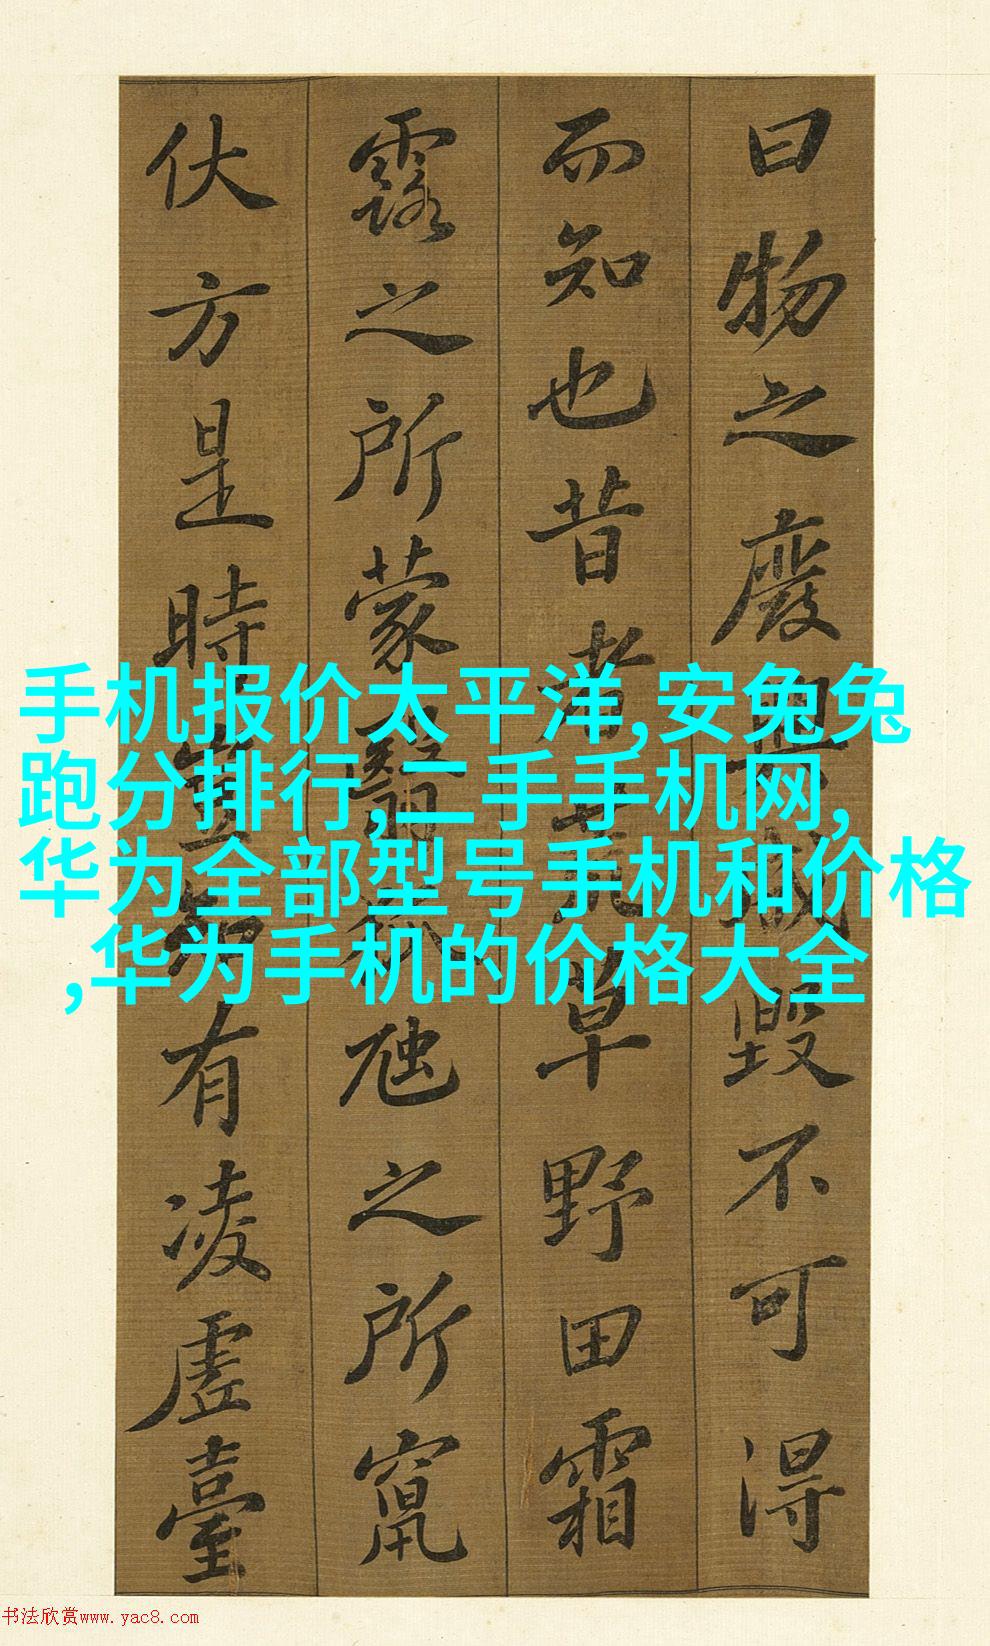 曰物之廢興成毀不可得
而知也昔者荒草野田霜
露之所蒙翳狐虺之所竄
伏方是時豈知有凌虛臺
手机报价太平洋,安兔兔
跑分排行,二手手机网,
华为全部型号手机和价格
,华为手机的价格大全
书法欣赏www.yac8.com